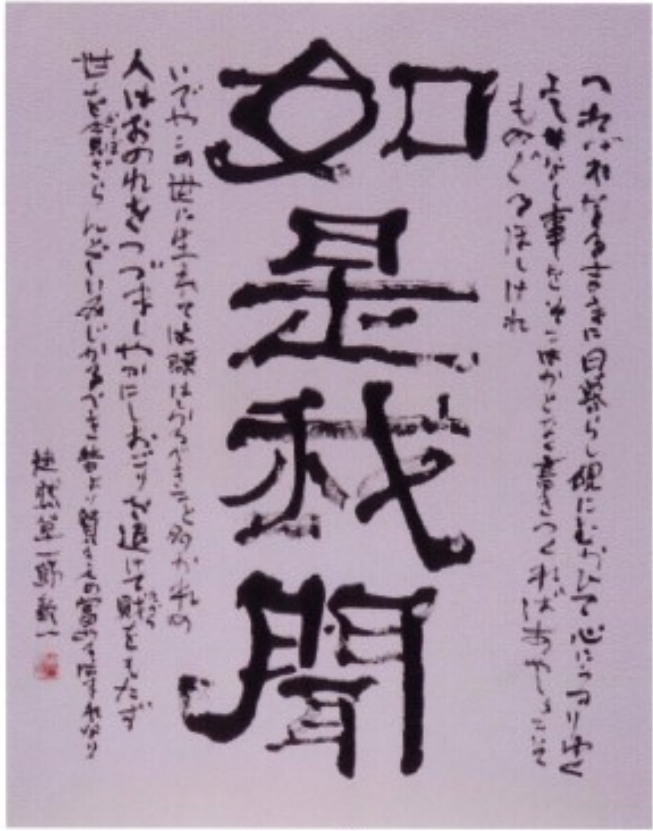 つれづれなるまゝに日暮らし硯にむかひて心にうつりゆく
よしなし事をそこはかとなく書きつくればあやしうこそ
ものぐるほしけれ
如是我聞
いでやこの世に生れては願はしかるべきこと多か
人はおのれをつづまやかにしおごりを退けて財をもたず
世を貪ざらんぞいみじかるべき昔より賢き人の富るはまれなり
徒然草一節